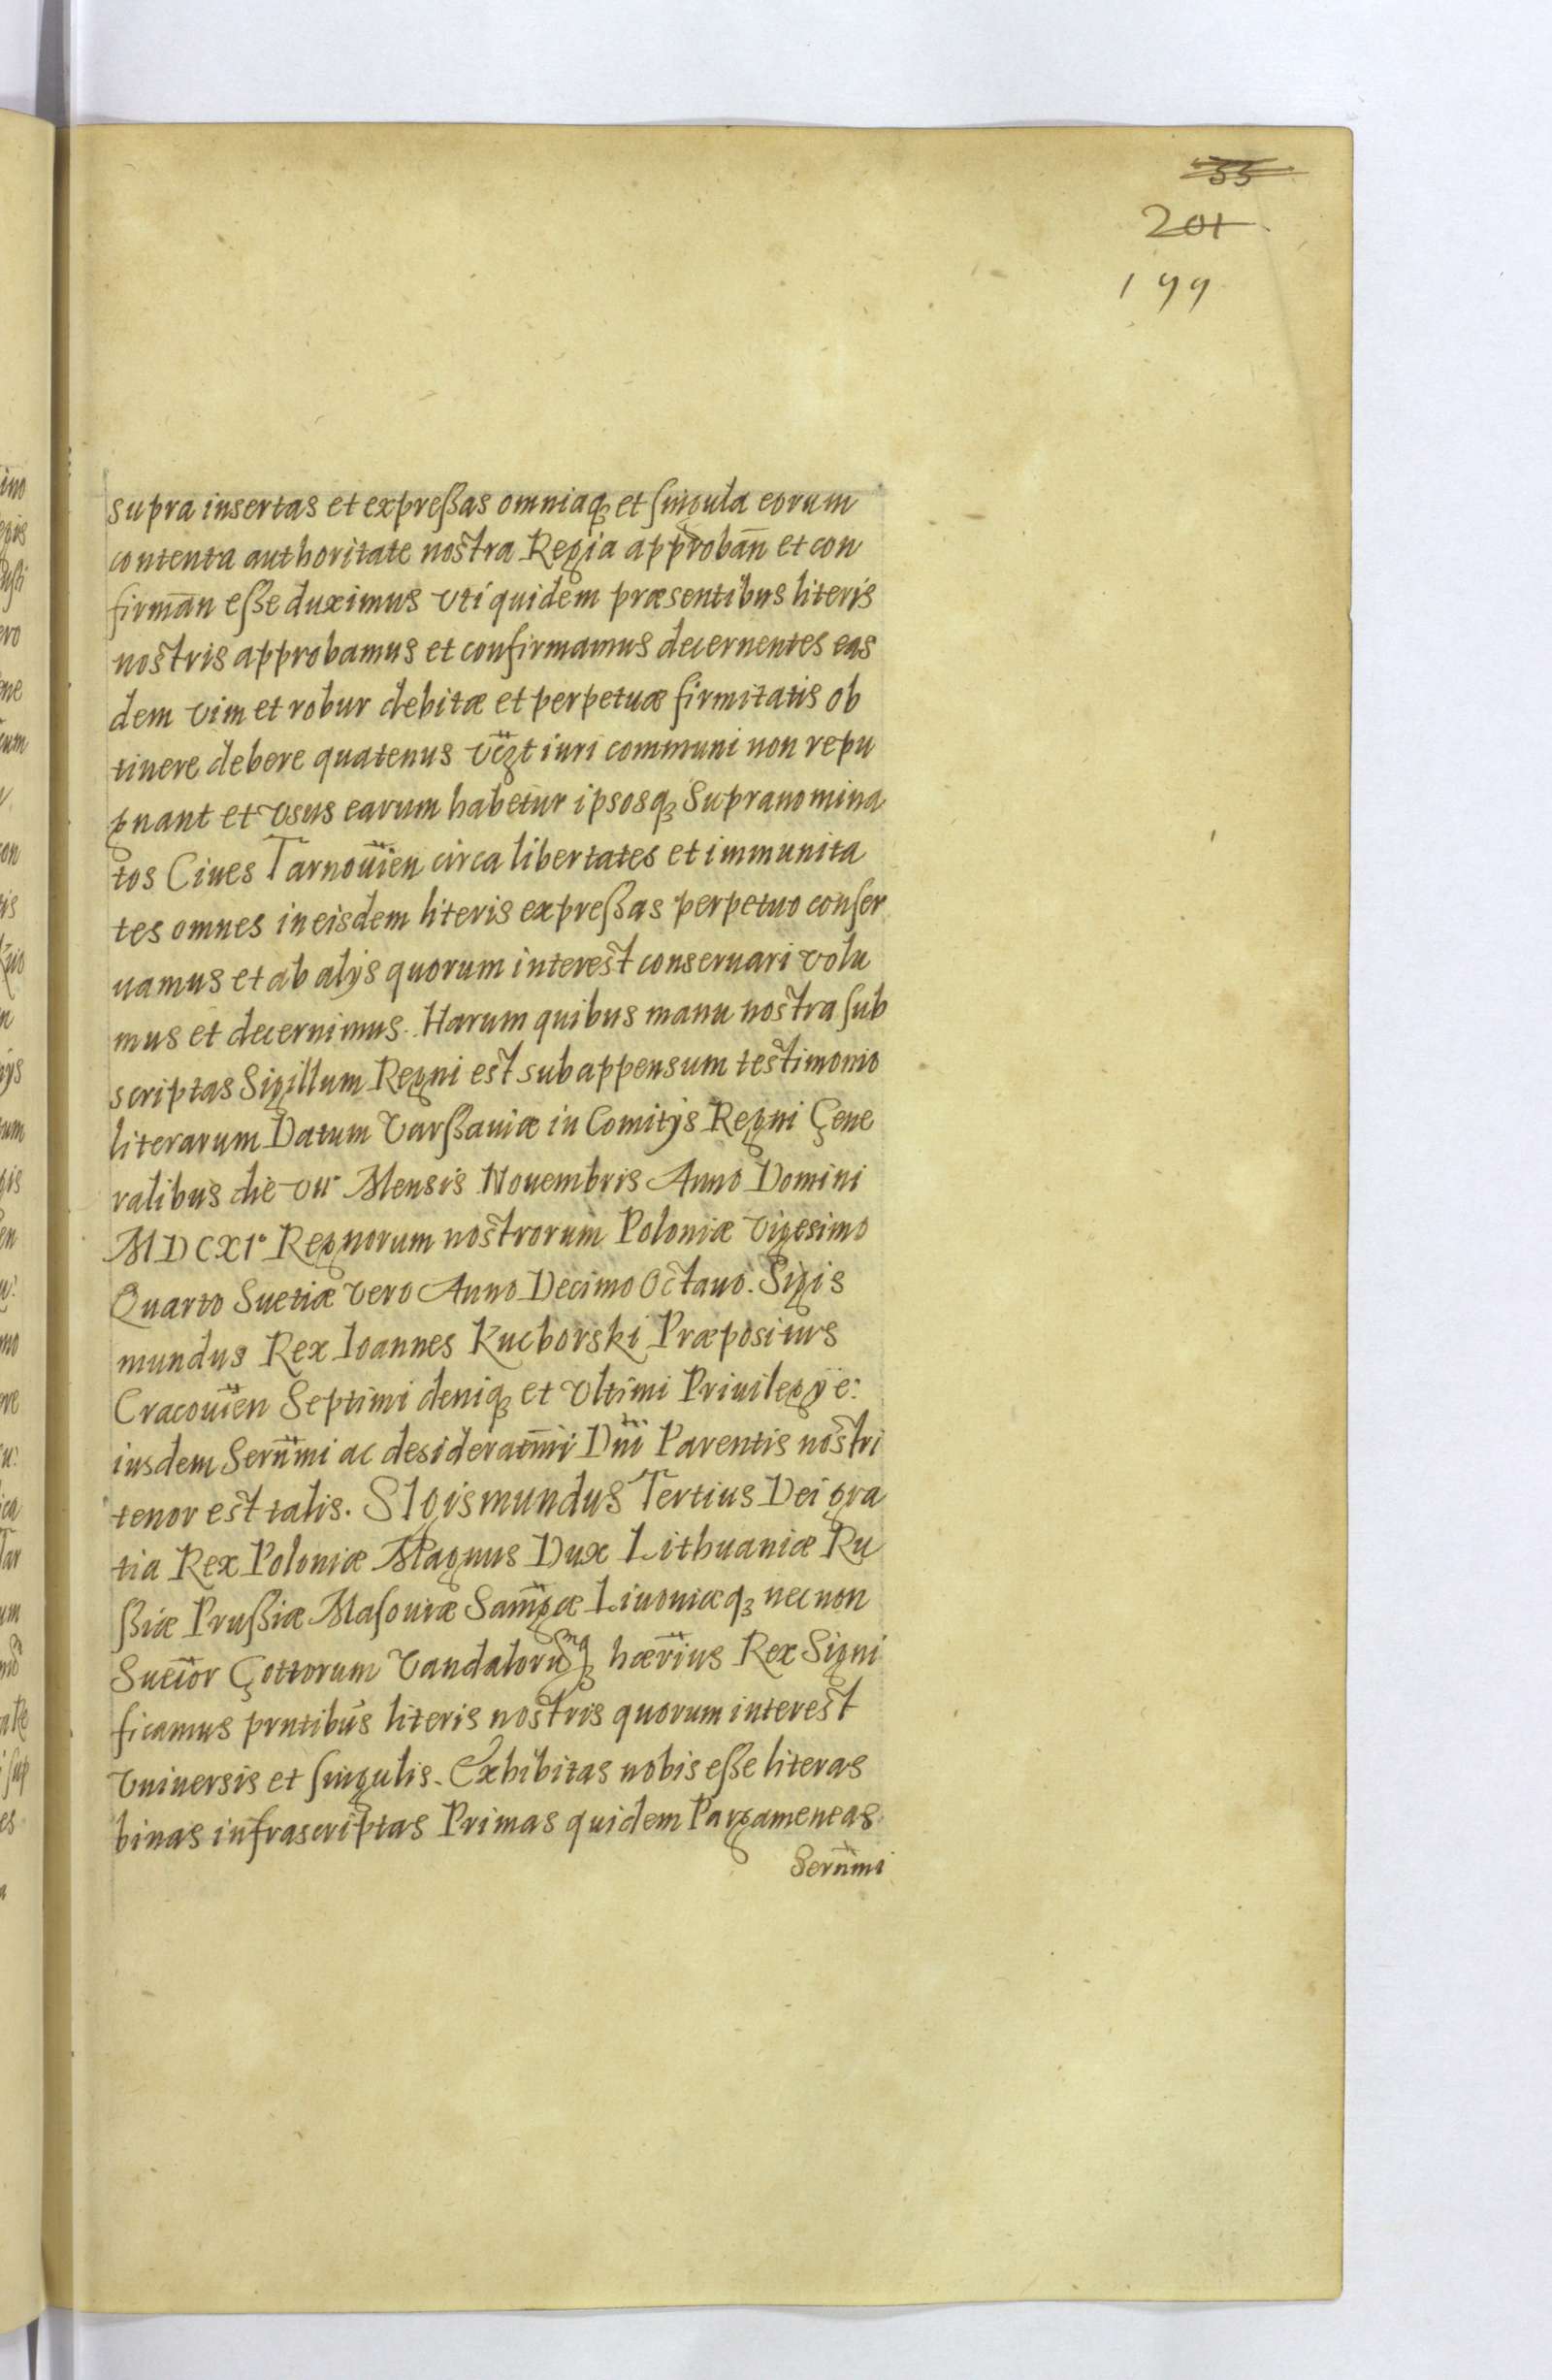 55
201
199
supra insertas et expreßas omniaqꝫ et singula eorum
contenta authoritate nostra Regia approban̄ et con
firman̄ eße duximus vti quidem præsentibus literis
nostris approbamus et confirmamus decernentes eas
dem vim et robur debitæ et perpetuæ firmitatis ob
tinere debere quatenus vc̃zt iuri communi non repu
gnant et vsus earum habetur ipsosqꝫ Supranomina
tos Ciues Tarnouien̄ circa libertates et immunita
tes omnes in eisdem literis expreßas perpetuo conser
uamus et ab alijs quorum interest conseruari volu
mus et decernimus. Harum quibus manu nostra sub
scriptas Sigillum Regni est subappensum testimonio
literarum Datum Varßauiæ in Comitijs Regni Gene
ralibus die VII Mensis Nouembris Anno Domini
MDCXI° Regnorum nostrorum Poloniæ Vigesimo
Quarto Suetiæ vero Anno Decimo Octauo. Sigis
mundus Rex Ioannes Kucborski Præpositus
Cracouien̄ Septimi deniqꝫ et vltimi Priuilegij e:
iusdem Sern̄mi ac desideratm̄i Dn̄i Parentis nostri
tenor est talis. SIgismundus Tertius Dei gra
tia Rex Poloniæ Magnus Dux Lithuaniæ Ru
ßiæ Prußiæ Masouiæ Sam̄gæ Liuoniæqꝫ necnon
Suecior̄ Gottorum Vandalorumqꝫ hær̄ius Rex Signi
ficamus prntibus literis nostris quorum interest
Vniuersis et singulis. Exhibitas nobis eße literas
binas infrascriptas Primas quidem Pargameneas
Sern̄mi